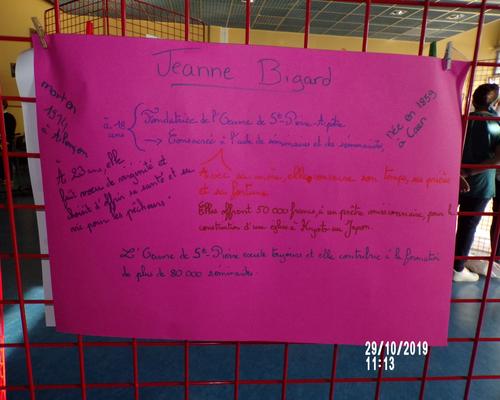 Jeanne Bigard
morte en
1934
à Alençon
Née en 1859
à Caen
à 18
ans
Fondatrice de l'Œuvre de St-Pierre-Apôtre
→ Consacrée à l'aide de séminaires et des séminaristes,
À 23 ans, elle
fait vœu de virginité et
d'offrir sa santé et sa
vie pour les pêcheurs.
Avec sa mère, elle consacre son temps, ses prières
et sa fortune.
Elles offrent 50 000 francs, à un prêtre missionnaire, pour la
construction d'une église à Kyoto au Japon.
L'Œuvre de St-Pierre existe toujours et elle contribue à la formation
de plus de 80 000 séminaristes.
29/10/2019
11:13